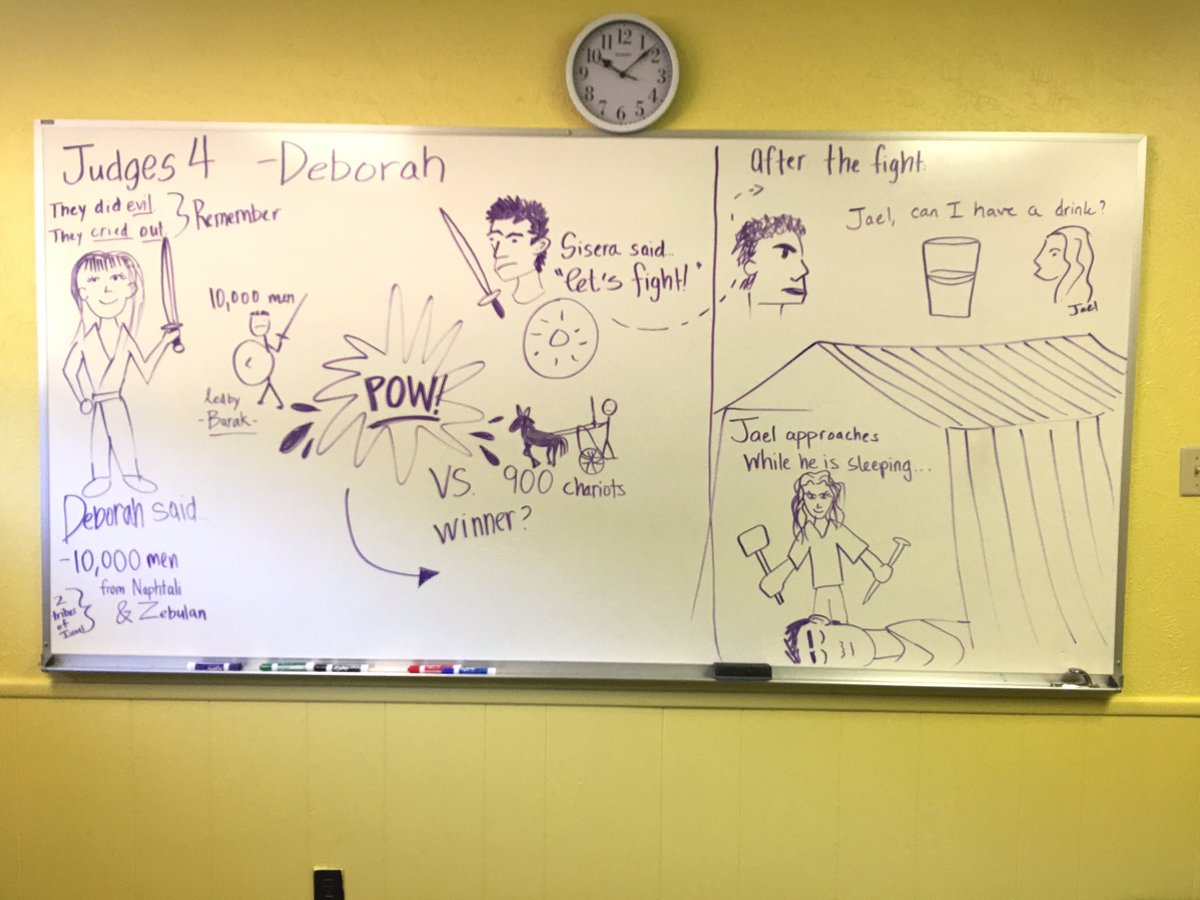 Judges 4 - Deborah
They did evil
They cried out
Remember
10,000 men
led by
- Barak -
POW!
Sisera said...
"let's fight!"
VS. 900 chariots
winner?
Deborah said...
- 10,000 men
from Naphtali
& Zebulan
2
tribes
of
Israel
After the fight
Jael, can I have a drink?
Jael
Jael approaches
while he is sleeping...
12
1
2
3
4
5
6
7
8
9
10
11